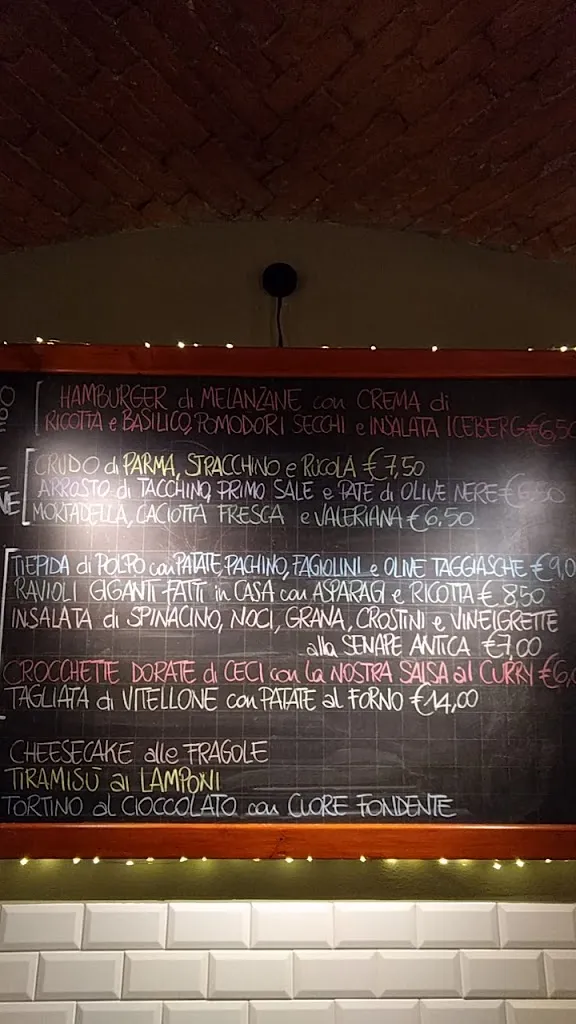 HAMBURGER di MELANZANE con CREMA di
RICOTTA e BASILICO, POMODORI SECCHI e INSALATA ICEBERG €6,50
CRUDO di PARMA, STRACCHINO e RUCOLA €7,50
ARROSTO di TACCHINO, PRIMO SALE e PATE di OLIVE NERE €6,50
MORTADELLA, CACIOTTA FRESCA e VALERIANA €6.50
TIEPIDA di POLPO con PATATE, PACHINO, FAGIOLINI e OLIVE TAGGIASCHE €9,0
RAVIOLI GIGANTI FATTI in CASA con ASPARAGI e RICOTTA € 8,50
INSALATA di SPINACINO, NOCI, GRANA, CROSTINI e VINEIGRETTE
alla SENAPE ANTICA €7,00
CROCCHETTE DORATE di CECI con la NOSTRA SALSA al CURRY €6,
TAGLIATA di VITELLONE con PATATE al FORNO €14,00
CHEESECAKE alle FRAGOLE
TIRAMISÙ ai LAMPONI
TORTINO al CIOCCOLATO con CUORE FONDENTE